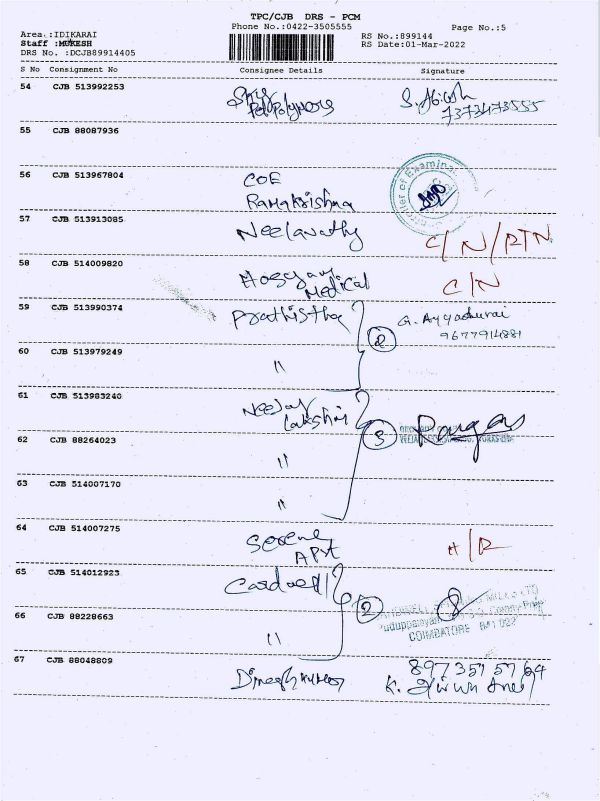 TPC/CJB DRS - PCM
Phone No.:0422-3505555
Page No.:5
Area :IDIKARAI
RS No.:899144
Staff :MUKESH
RS Date:01-Mar-2022
DRS No. :DCJB89914405
S No Consignment No Consignee Details Signature
54 CJB 513992253 Polymers S. Abinesh
7373473555
55 CJB 88087936
56 CJB 513967804 COE
Ramakrishna
57 CJB 513913085 Neelavathy C/N/RTN
58 CJB 514009820 Medical C/N
59 CJB 513990374 Prathistha 2 G. Ayyadurai
9677914881
60 CJB 513979249 "
61 CJB 513983240 Lakshmi
62 CJB 88264023 " 3
63 CJB 514007170 "
64 CJB 514007275 Serene
APT H/R
65 CJB 514012923 Cardwell 2
COIMBATORE
66 CJB 88228663 "
67 CJB 88048809 Dineshkumar
K.